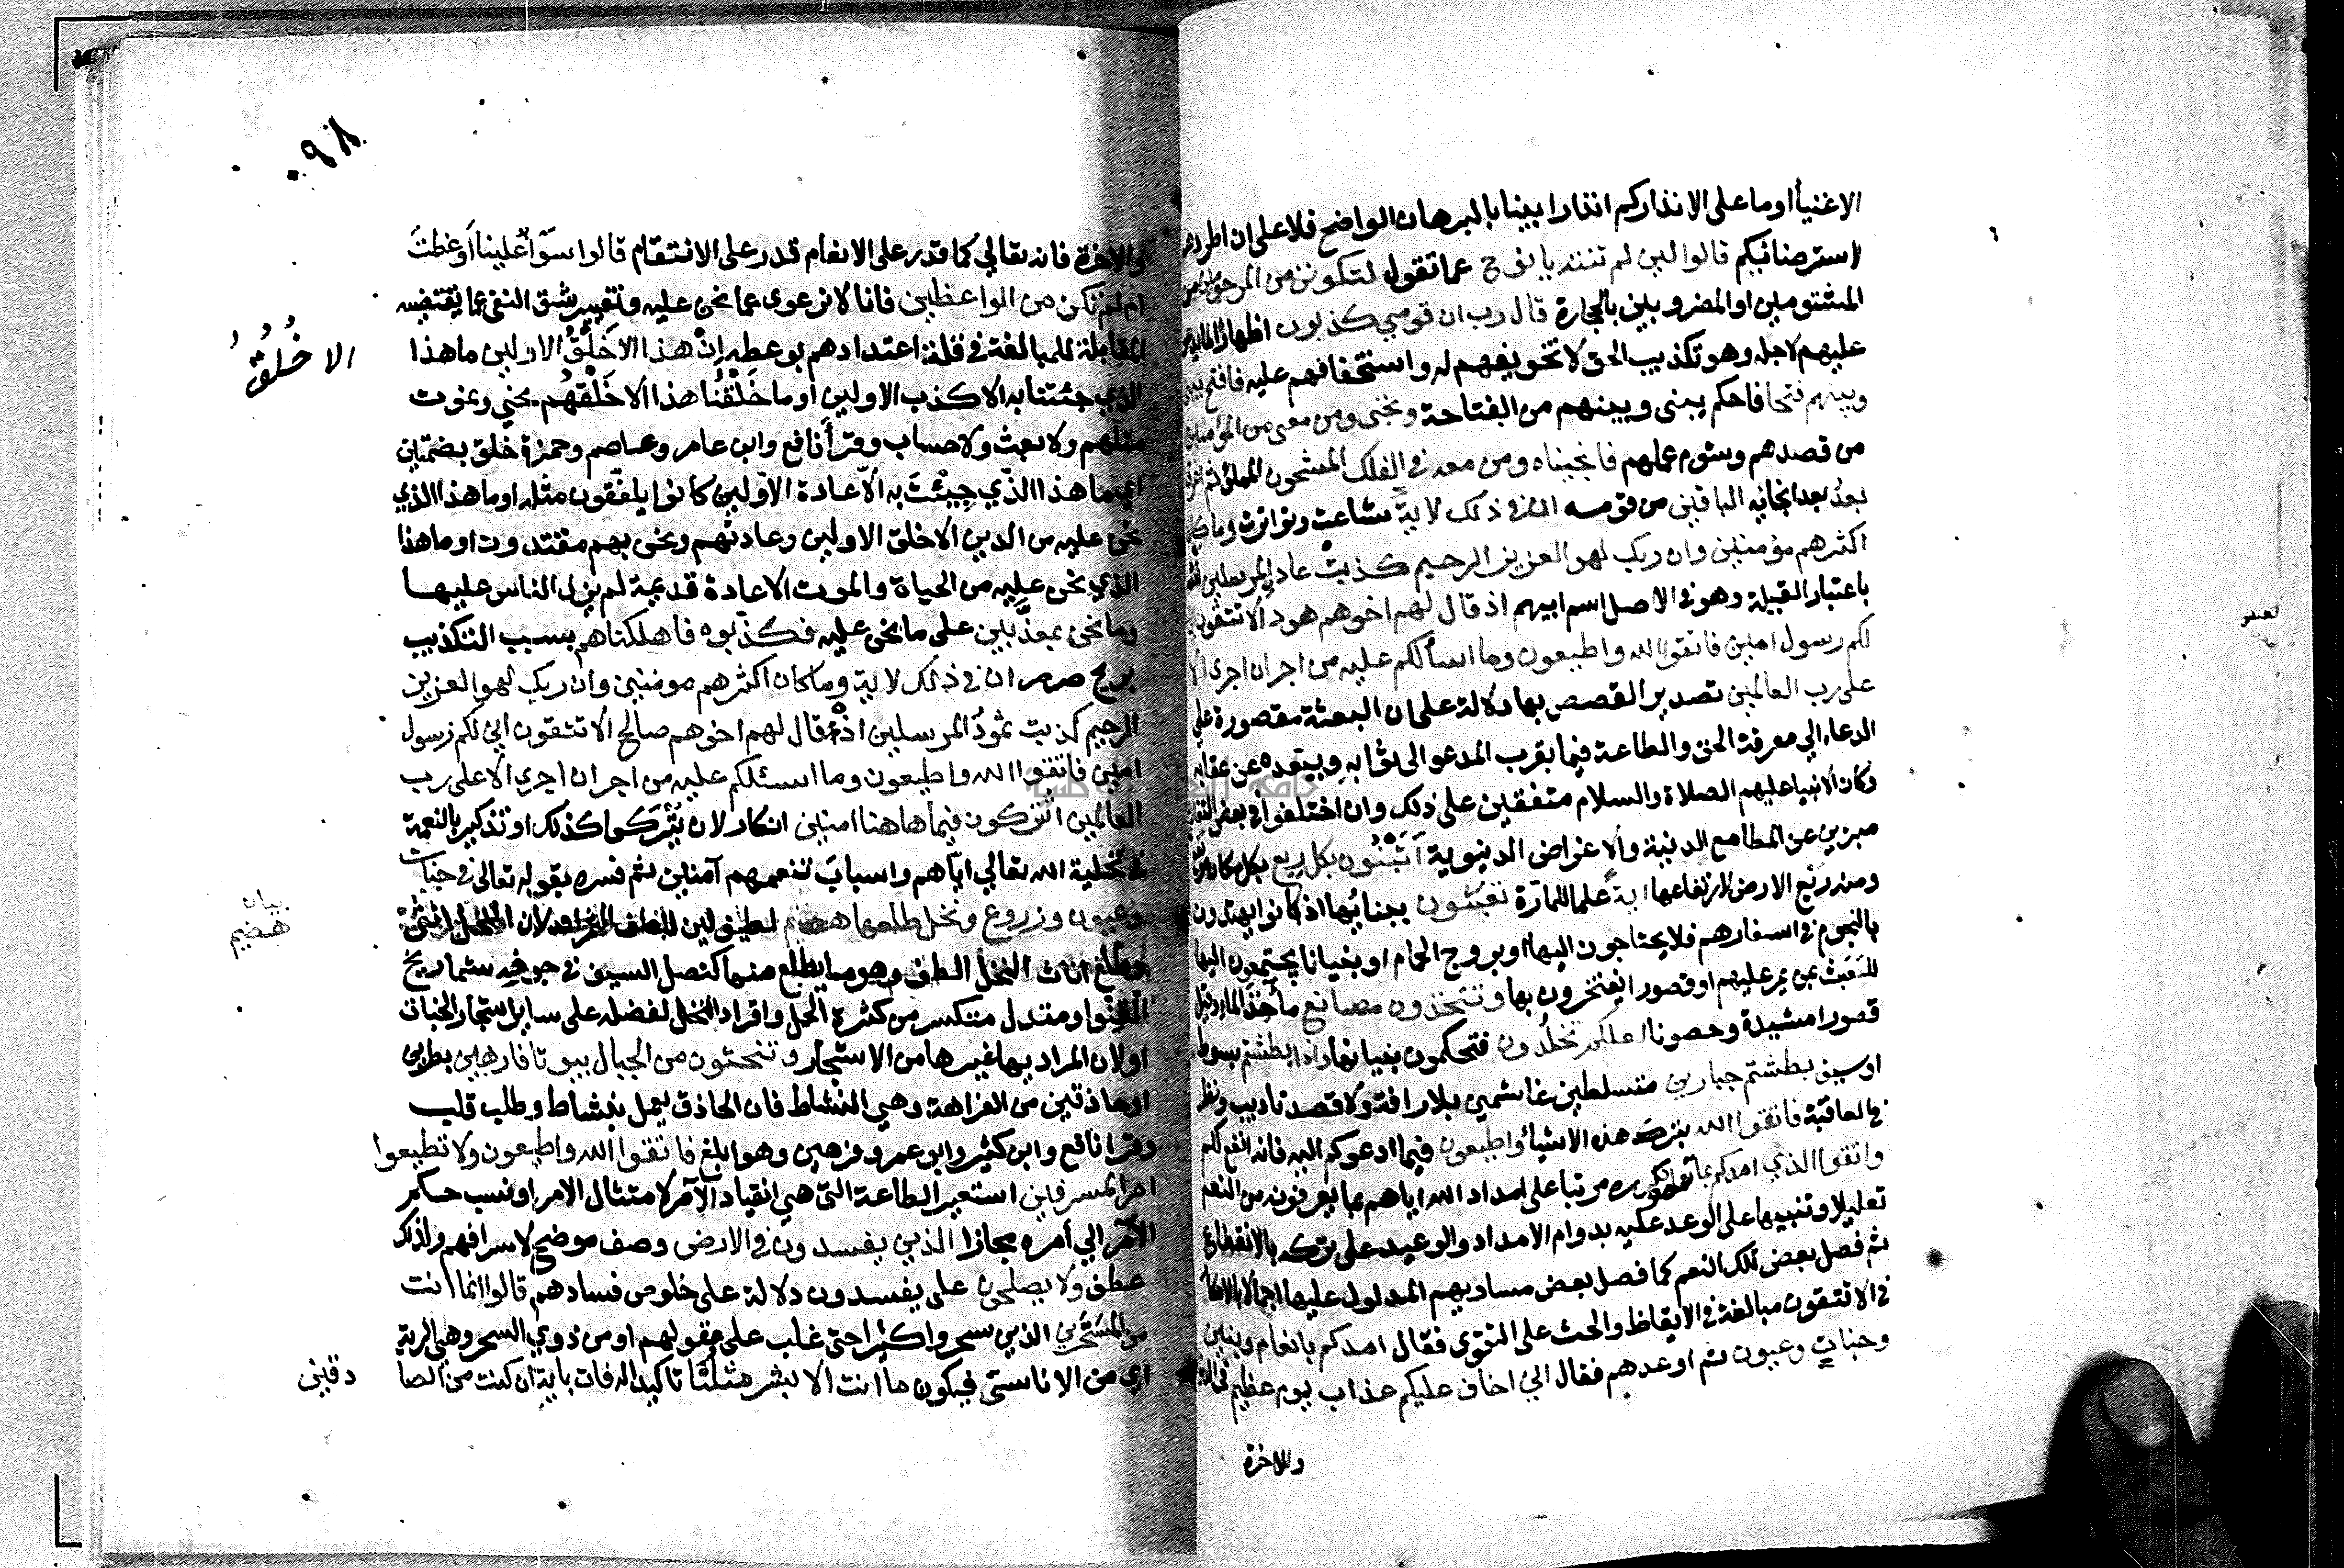 الاغنيأ او ما على الا انذاركم انذارا بينا بالبرهان الواضح فلا على ان اطردهم
لاسترضائكم قالوا لين لم تنته يا نوح عما تقول لتكونن من المرجومين من
المشتومين او المضروبين بالحجارة قال رب ان قومي كذبون اظهارا لما يدعو
عليهم لاجله وهو تكذيب الحق لا تخويفهم له واستخفافهم عليه فافتح بيني
وبينهم فتحا فاحكم بيني وبينهم من الفتاحة ونجني ومن معي من المؤمنين
من قصدهم وشوم عملهم فانجيناه ومن معه في الفلك المشحون المملئ ثم اغرقنا
بعدُ بعد انجائه الباقين من قومه ان في ذلك لاية شاعت وتواترت وما كان
اكثرهم مؤمنين وان ربك لهو العزيز الرحيم كذبت عاد المرسلين انثه
باعتبار القبيلة وهو في الاصل اسم ابيهم اذ قال لهم اخوهم هود الا تتقون اني
لكم رسول امين فاتقوا الله واطيعون وما اسألكم عليه من اجر ان اجري الا
على رب العالمين تصدير القصص بها دلالة على ان البعثة مقصورة على
الدعاء الي معرفة الحق والطاعة فيما يقرب المدعو الى ثوابه ويبعده عن عقابه
وكان الانبيا عليهم الصلاة والسلام متفقين على ذلك وان اختلفوا في بعض التفاريع
مبرين عن المطامع الدنية والاغراض الدنيوية أتبنون بكل ريع بكل مكان مرتفع
ومنه ريع الارض لارتفاعها اية علما للمارة تعبثون ببنائها اذ كانوا يهتدون
بالنجوم في اسفارهم فلا يحتاجون اليها او بروج الحمام او بنيانا يجتمعون اليها
للعبث بمن يمر عليهم او قصورا يفتخرون بها وتتخذون مصانع مآخذ الماء وقيل
قصورا مشيدة وحصونا لعلكم تخلدون فتحكمون بنيانها واذا بطشتم بسوط
او سيف بطشتم جبارين متسلطين غاشمين بلا رافة ولا قصد تاديب ونظر
في العاقبة فاتقوا الله بترك هذه الاشيأ واطيعون فيما ادعوكم اليه فانه انفع لكم
واتقوا الذي امدكم بما تعلمون كرره مرتبا على امداد الله اياهم بما يعرفونه من النعم
تعليلا وتنبيها على الوعد عليه بدوام الامداد والوعيد على تركه بالانقطاع
ثم فصل بعض تلك النعم كما فصل بعض مساويهم المدلول عليها اجمالا بالانكار
في الا تتقون مبالغة في الايقاظ والحث على التقوى فقال امدكم بانعام وبنين
وجنات وعيون ثم اوعدهم فقال اني اخاف عليكم عذاب يوم عظيم في الدنيا
والاخرة
٠٩٨
والاخرة فانه تعالي كما قدر على الانعام قدر على الانتقام قالوا سوآ علينا أوعظت
ام لم تكن من الواعظين فانا لا نرعوى عما نحن عليه وتغيير شق النفي عما يقتضيه
المقابلة للمبالغة في قلة اعتدادهم بوعظه إن هذا الا خَلْقُ الاولين ما هذا
الا خُلُقُ
الذي جئتنا به الا كذب الاولين او ما خَلْقُنا هذا الا خَلْقُهم نحيي ونموت
مثلهم ولا بعث ولا حساب وقرأ نافع وابن عامر وعاصم وحمزة خلق بضمتين
اي ما هذا الذي جِيئْتَ به الا عادة الاولين كانوا يلفقون مثله او ما هذا الذي
نحن عليه من الدين الا خلق الاولين وعادتهم ونحن بهم مقتدون او ما هذا
الذي نحن عليه من الحياة والموت الا عادة قديمة لم يزل الناس عليها
وما نحن بمعذبين على ما نحن عليه فكذبوه فاهلكناهم بسبب التكذيب
بريح صرصر ان في ذلك لاية وما كان اكثرهم مومنين وان ربك لهو العزيز
الرحيم كذبت ثمودُ المرسلين اذ قال لهم اخوهم صالح الا تتقون اني لكم رسول
امين فاتقوا الله واطيعون وما اسئلكم عليه من اجر ان اجري الا على رب
العالمين اتتركون فيما هاهنا امنين انكار لان يُتْرَكوا كذلك او تذكير بالنعمة
في تخلية الله تعالي اياهم واسبابَ تنعمهم آمنين ثم فسره بقوله تعالى في جنات
وعيون وزروع ونخل طلعها هضيم لطيف لين للطف الثمر او لان النخل انثى
بيان
هضيم
وطلع اناث النخل الطف وهو ما يطلع منها كنصل السيف في جوفه شماريخ
القنو او متدل منكسر من كثرة الحمل وافراد النخل لفضله على ساير اشجار الجنات
او لان المراد بها غيرها من الاشجار وتنحتون من الجبال بيوتا فارهين بطرين
او حاذقين من الفراهة وهي النشاط فان الحاذق يعمل بنشاط وطلب قلب
وقرا نافع وابن كثير وابو عمرو فرهين وهو ابلغ فاتقوا الله واطيعون ولا تطيعوا
امر المسرفين استعير الطاعة التي هي انقياد الآمر لامتثال الامر او نسب حكم
الآمر الي أمره مجازا الذين يفسدون في الارض وصف موضح لاسرافهم ولذلك
عطف ولا يصلحون على يفسدون دلالة على خلوص فسادهم قالوا انما أنت
من المسَحَّرين الذين سحروا كثيرا حتى غلب على عقولهم او من ذوي السحر وهي الرية
اي من الاناسي فيكون ما أنت الا بشر مثلنا تاكيدا له فات باية ان كنت من الصا
دقين